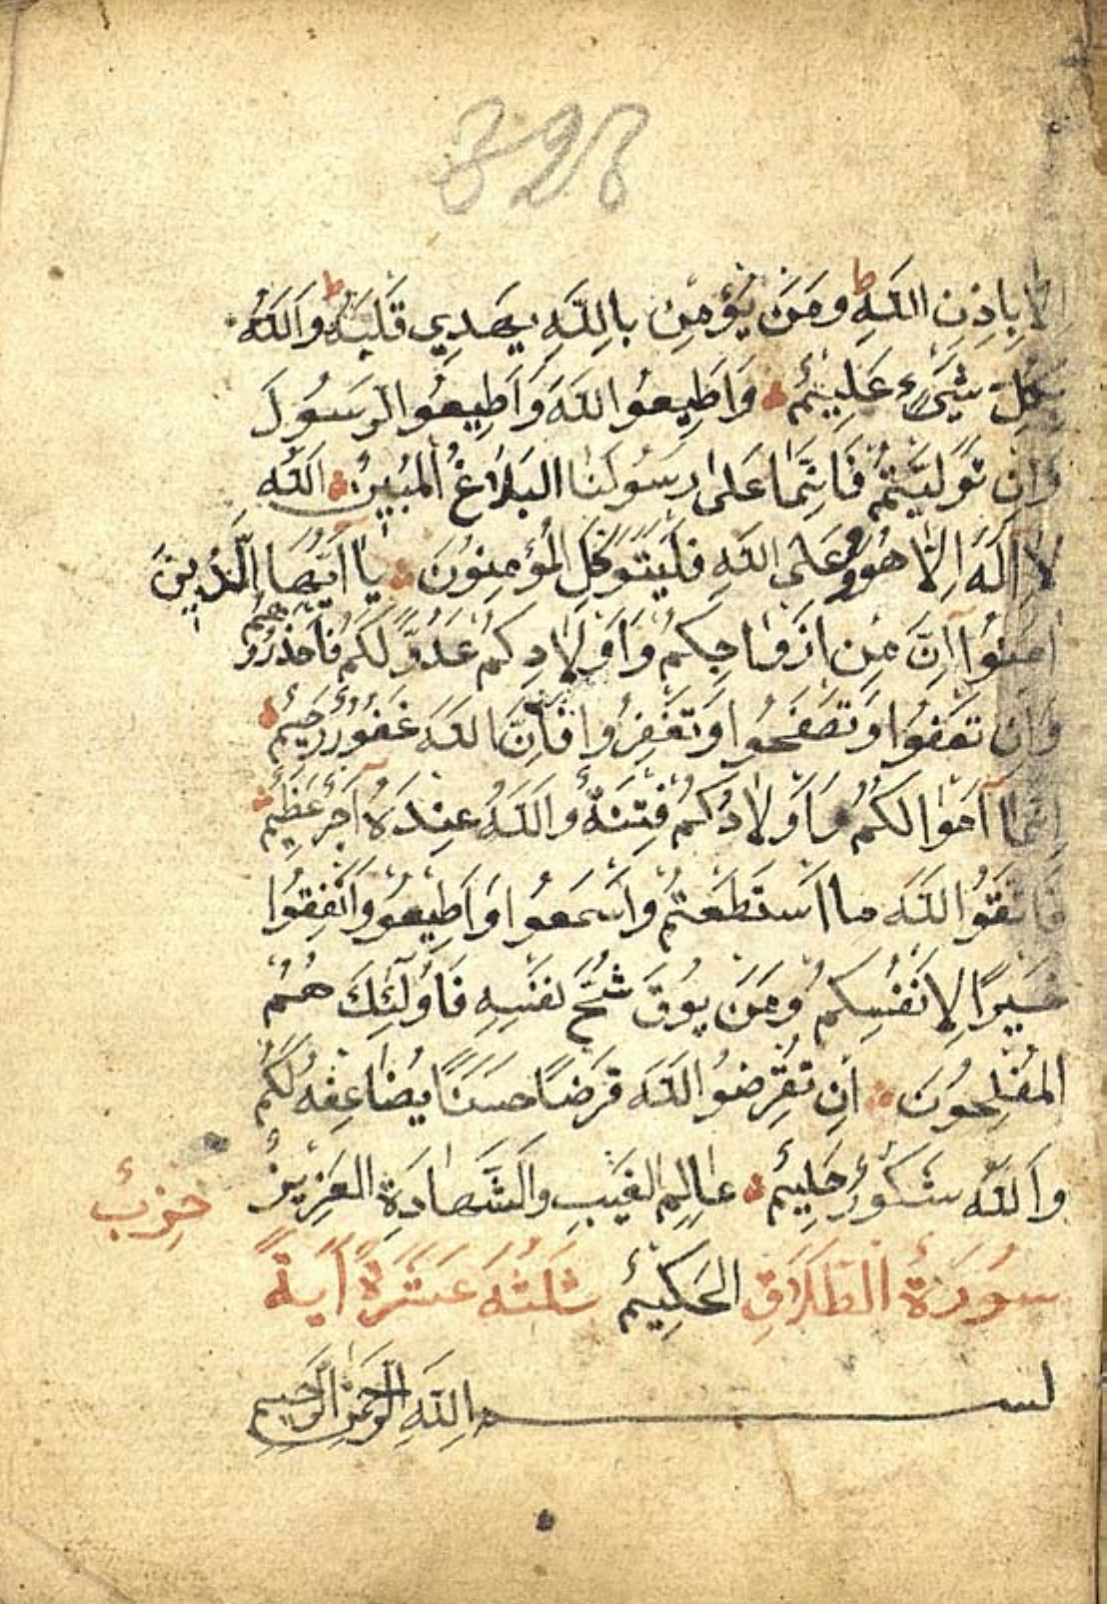 328
اِلَّا بِاِذْنِ اللَّهِ ط وَمَنْ يُؤْمِنْ بِاللَّهِ يَهْدِي قَلْبَهُ ط وَاللَّهُ
بِكُلِّ شَيْءٍ عَلِيمٌ وَاَطِيعُوا اللَّهَ وَاَطِيعُوا الرَّسُولَ
وَاِنْ تَوَلَّيْتُمْ فَاِنَّمَا عَلَى رَسُولِنَا الْبَلَاغُ الْمُبِينُ اَللَّهُ
لَا اِلَهَ اِلَّا هُوَ وَعَلَى اللَّهِ فَلْيَتَوَكَّلِ الْمُؤْمِنُونَ يَا اَيُّهَا الَّذِينَ
اٰمَنُوا اِنَّ مِنْ اَزْوَاجِكُمْ وَاَوْلَادِكُمْ عَدُوًّا لَكُمْ فَاحْذَرُوهُمْ
وَاِنْ تَعْفُوا وَتَصْفَحُوا وَتَغْفِرُوا فَاِنَّ اللَّهَ غَفُورٌ رَحِيمٌ
اِنَّمَا اَمْوَالُكُمْ وَاَوْلَادُكُمْ فِتْنَةٌ وَاللَّهُ عِنْدَهُ اَجْرٌ عَظِيمٌ
فَاتَّقُوا اللَّهَ مَا اسْتَطَعْتُمْ وَاسْمَعُوا وَاَطِيعُوا وَاَنْفِقُوا
خَيْرًا لِاَنْفُسِكُمْ وَمَنْ يُوقَ شُحَّ نَفْسِهِ فَاُولَئِكَ هُمُ
الْمُفْلِحُونَ اِنْ تُقْرِضُوا اللَّهَ قَرْضًا حَسَنًا يُضَاعِفْهُ لَكُمْ
وَاللَّهُ شَكُورٌ حَلِيمٌ عَالِمُ الْغَيْبِ وَالشَّهَادَةِ الْعَزِيزُ
حِزْبٌ
سُورَةُ الطَّلَاقِ الْحَكِيمُ ثَلَثَةَ عَشَرَةً اٰيَةً
بسم اللَّهِ الرَّحْمَنِ الرَّحِيمِ